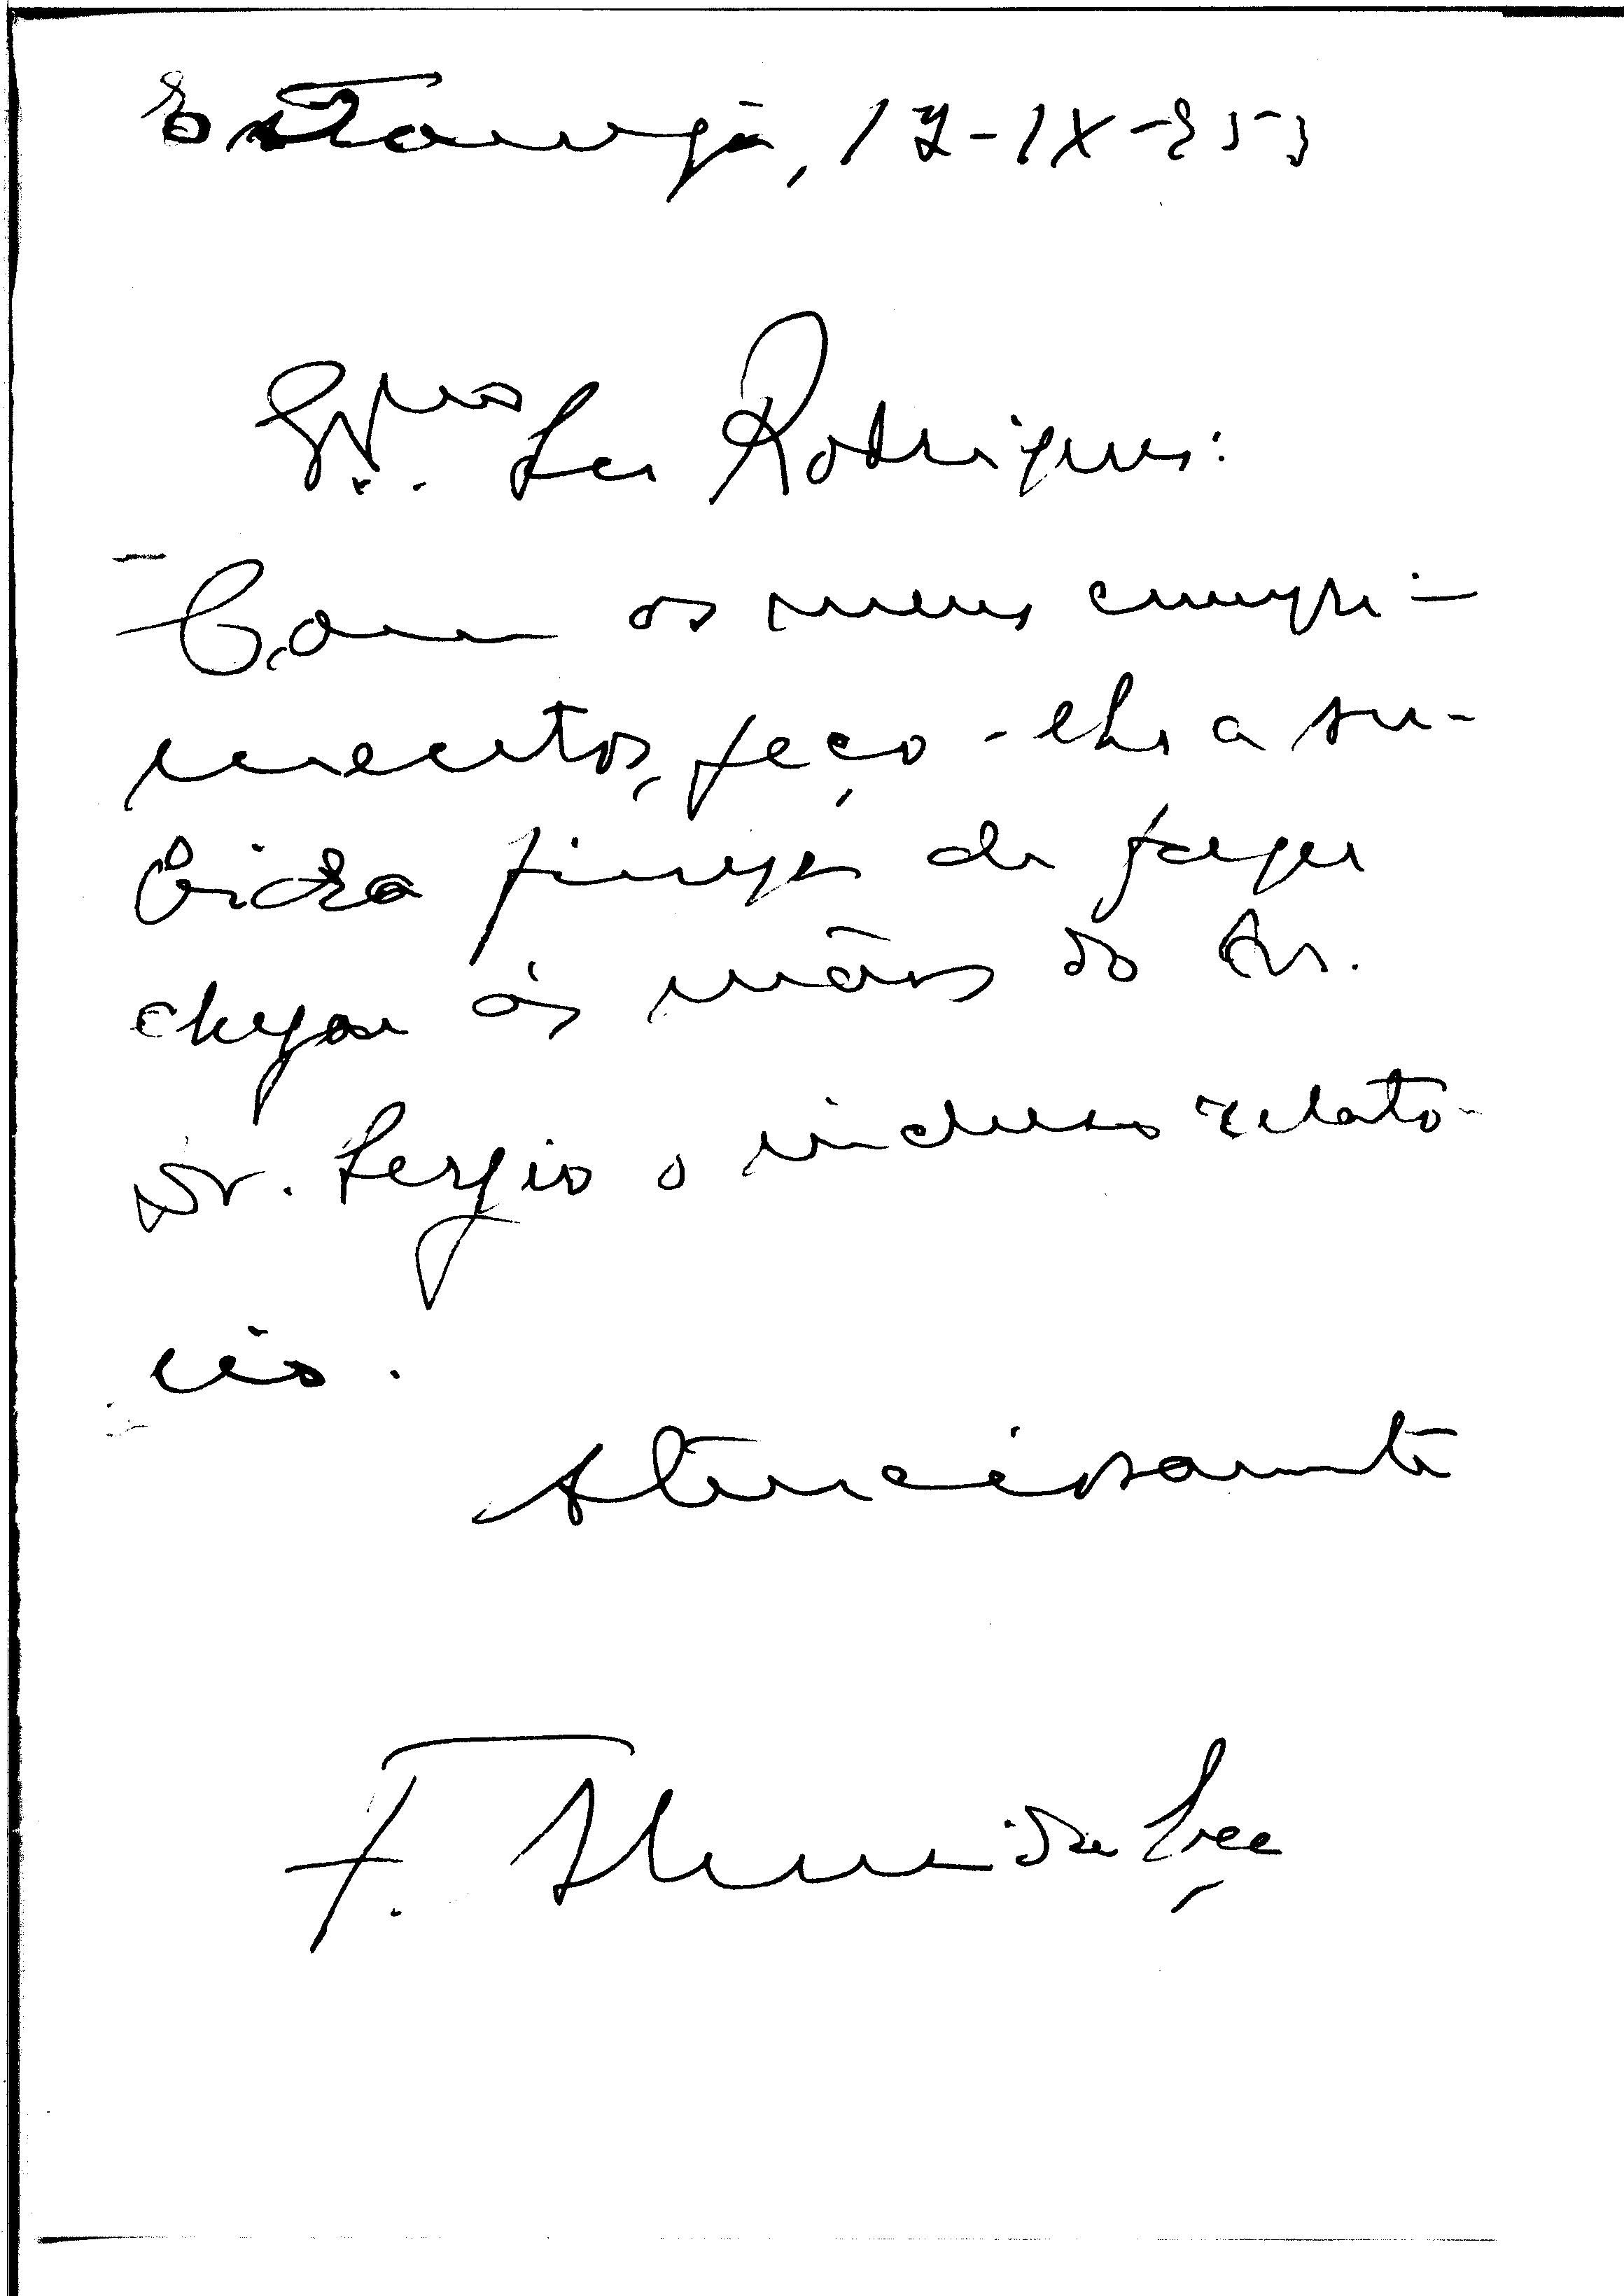 Estarreja, 17-IX-953
Exmo. Sr. Rodrigues:
Com os meus cumpri-
mentos, peço-lhe a su-
bida fineza de fazer
chegar às mãos do Sr.
Dr. Sergio o incluso relató-
rio.
Atenciosamente
F. Almeida Eça